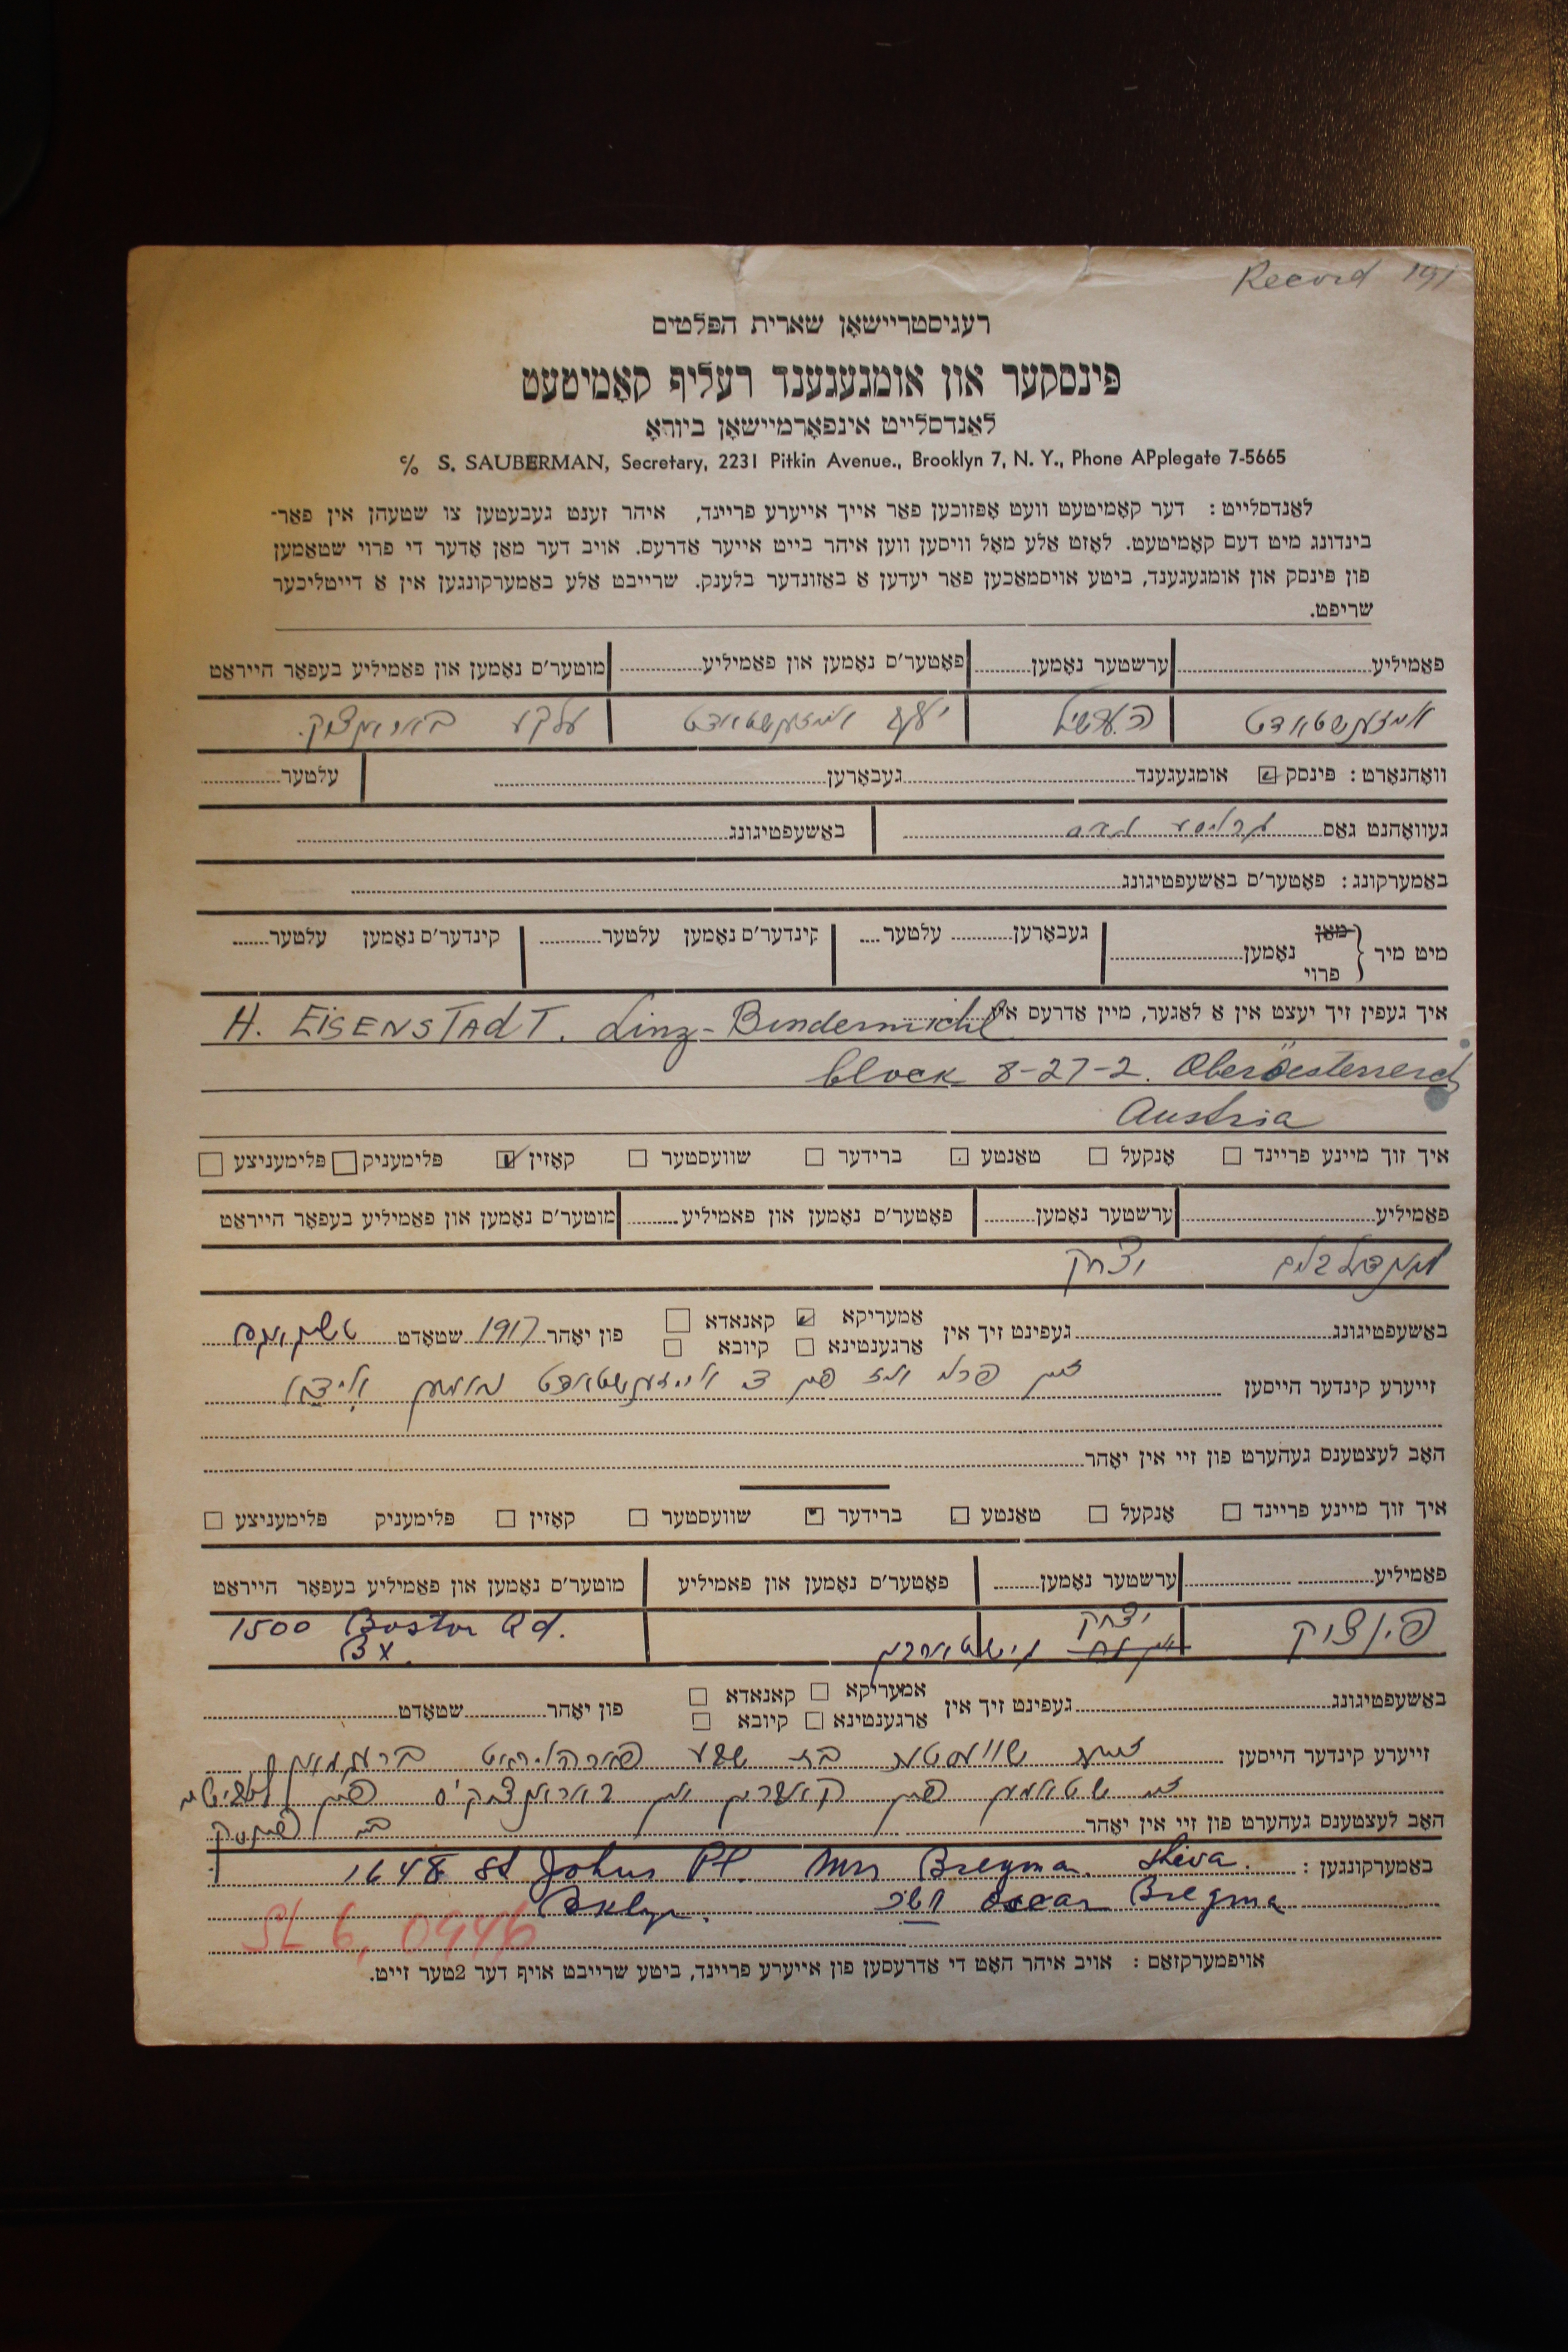 Record 191
רעגיסטריישאָן שארית הפּלטים
פּינסקער און אומגעגענד רעליף קאָמיטעט
לאַנדסלייט אינפאָרמיישאָן ביוראָ
c/o S. SAUBERMAN, Secretary, 2231 Pitkin Avenue., Brooklyn 7, N. Y., Phone APplegate 7-5665
לאַנדסלייט: דער קאָמיטעט וועט אָפּזוכען פאַר אייך אייערע פריינד, איהר זענט געבעטען צו שטעהן אין פאַר-
בינדונג מיט דעם קאָמיטעט. לאָזט אַלע מאָל וויסען ווען איהר בייט אייער אַדרעס. אויב דער מאַן אָדער די פרוי שטאַמען
פון פּינסק און אומגעגענד, ביטע אויסמאַכען פאַר יעדען אַ באַזונדער בלענק. שרייבט אַלע באַמערקונגען אין אַ דייטליכער
שריפט.
פאַמיליע ערשטער נאָמען פאָטער'ס נאָמען און פאַמיליע מוטער'ס נאָמען און פאַמיליע בעפאָר הייראַט
אייזענשטאדט העשיל יוסף אייזענשטאדט עלקע
וואָהנאָרט: פּינסק אומגעגענד געבאָרען עלטער
געוואָהנט גאַס באַשעפטיגונג
באַמערקונג: פאָטער'ס באַשעפטיגונג
מיט מיר מאַן פרוי נאָמען געבאָרען עלטער קינדער'ס נאָמען עלטער קינדער'ס נאָמען עלטער
איך געפין זיך יעצט אין אַ לאַגער, מיין אַדרעס איז H. EISENSTADT. Linz-Bindermichl
block 8-27-2. Oberöesterreich
Austria
איך זוך מיינע פריינד אָנקעל טאַנטע ברידער שוועסטער קאָזין פּלימעניק פּלימעניצע
פאַמיליע ערשטער נאָמען פאָטער'ס נאָמען און פאַמיליע מוטער'ס נאָמען און פאַמיליע בעפאָר הייראַט
יצחק
באַשעפטיגונג געפינט זיך אין אַמעריקא קאַנאַדאַ אַרגענטינא קיובא פון יאָהר 1917 שטאָדט
זייערע קינדער הייסען זיין פרוי איז פון די אייזענשטאדט
האָב לעצטענס געהערט פון זיי אין יאָהר
איך זוך מיינע פריינד אָנקעל טאַנטע ברידער שוועסטער קאָזין פּלימעניק פּלימעניצע
פאַמיליע ערשטער נאָמען פאָטער'ס נאָמען און פאַמיליע מוטער'ס נאָמען און פאַמיליע בעפאָר הייראַט
יצחק 1500 Boston Rd.
Bx.
באַשעפטיגונג געפינט זיך אין אַמעריקא קאַנאַדאַ אַרגענטינא קיובא פון יאָהר שטאָדט
זייערע קינדער הייסען
האָב לעצטענס געהערט פון זיי אין יאָהר
באַמערקונגען: 1648 St Johns Pl. Mrs Bregman. Sheva.
Bklyn. Oscar Bregma
SL 6, 0946
אויפמערקזאַם: אויב איהר האָט די אַדרעסען פון אייערע פריינד, ביטע שרייבט אויף דער 2טער זייט.